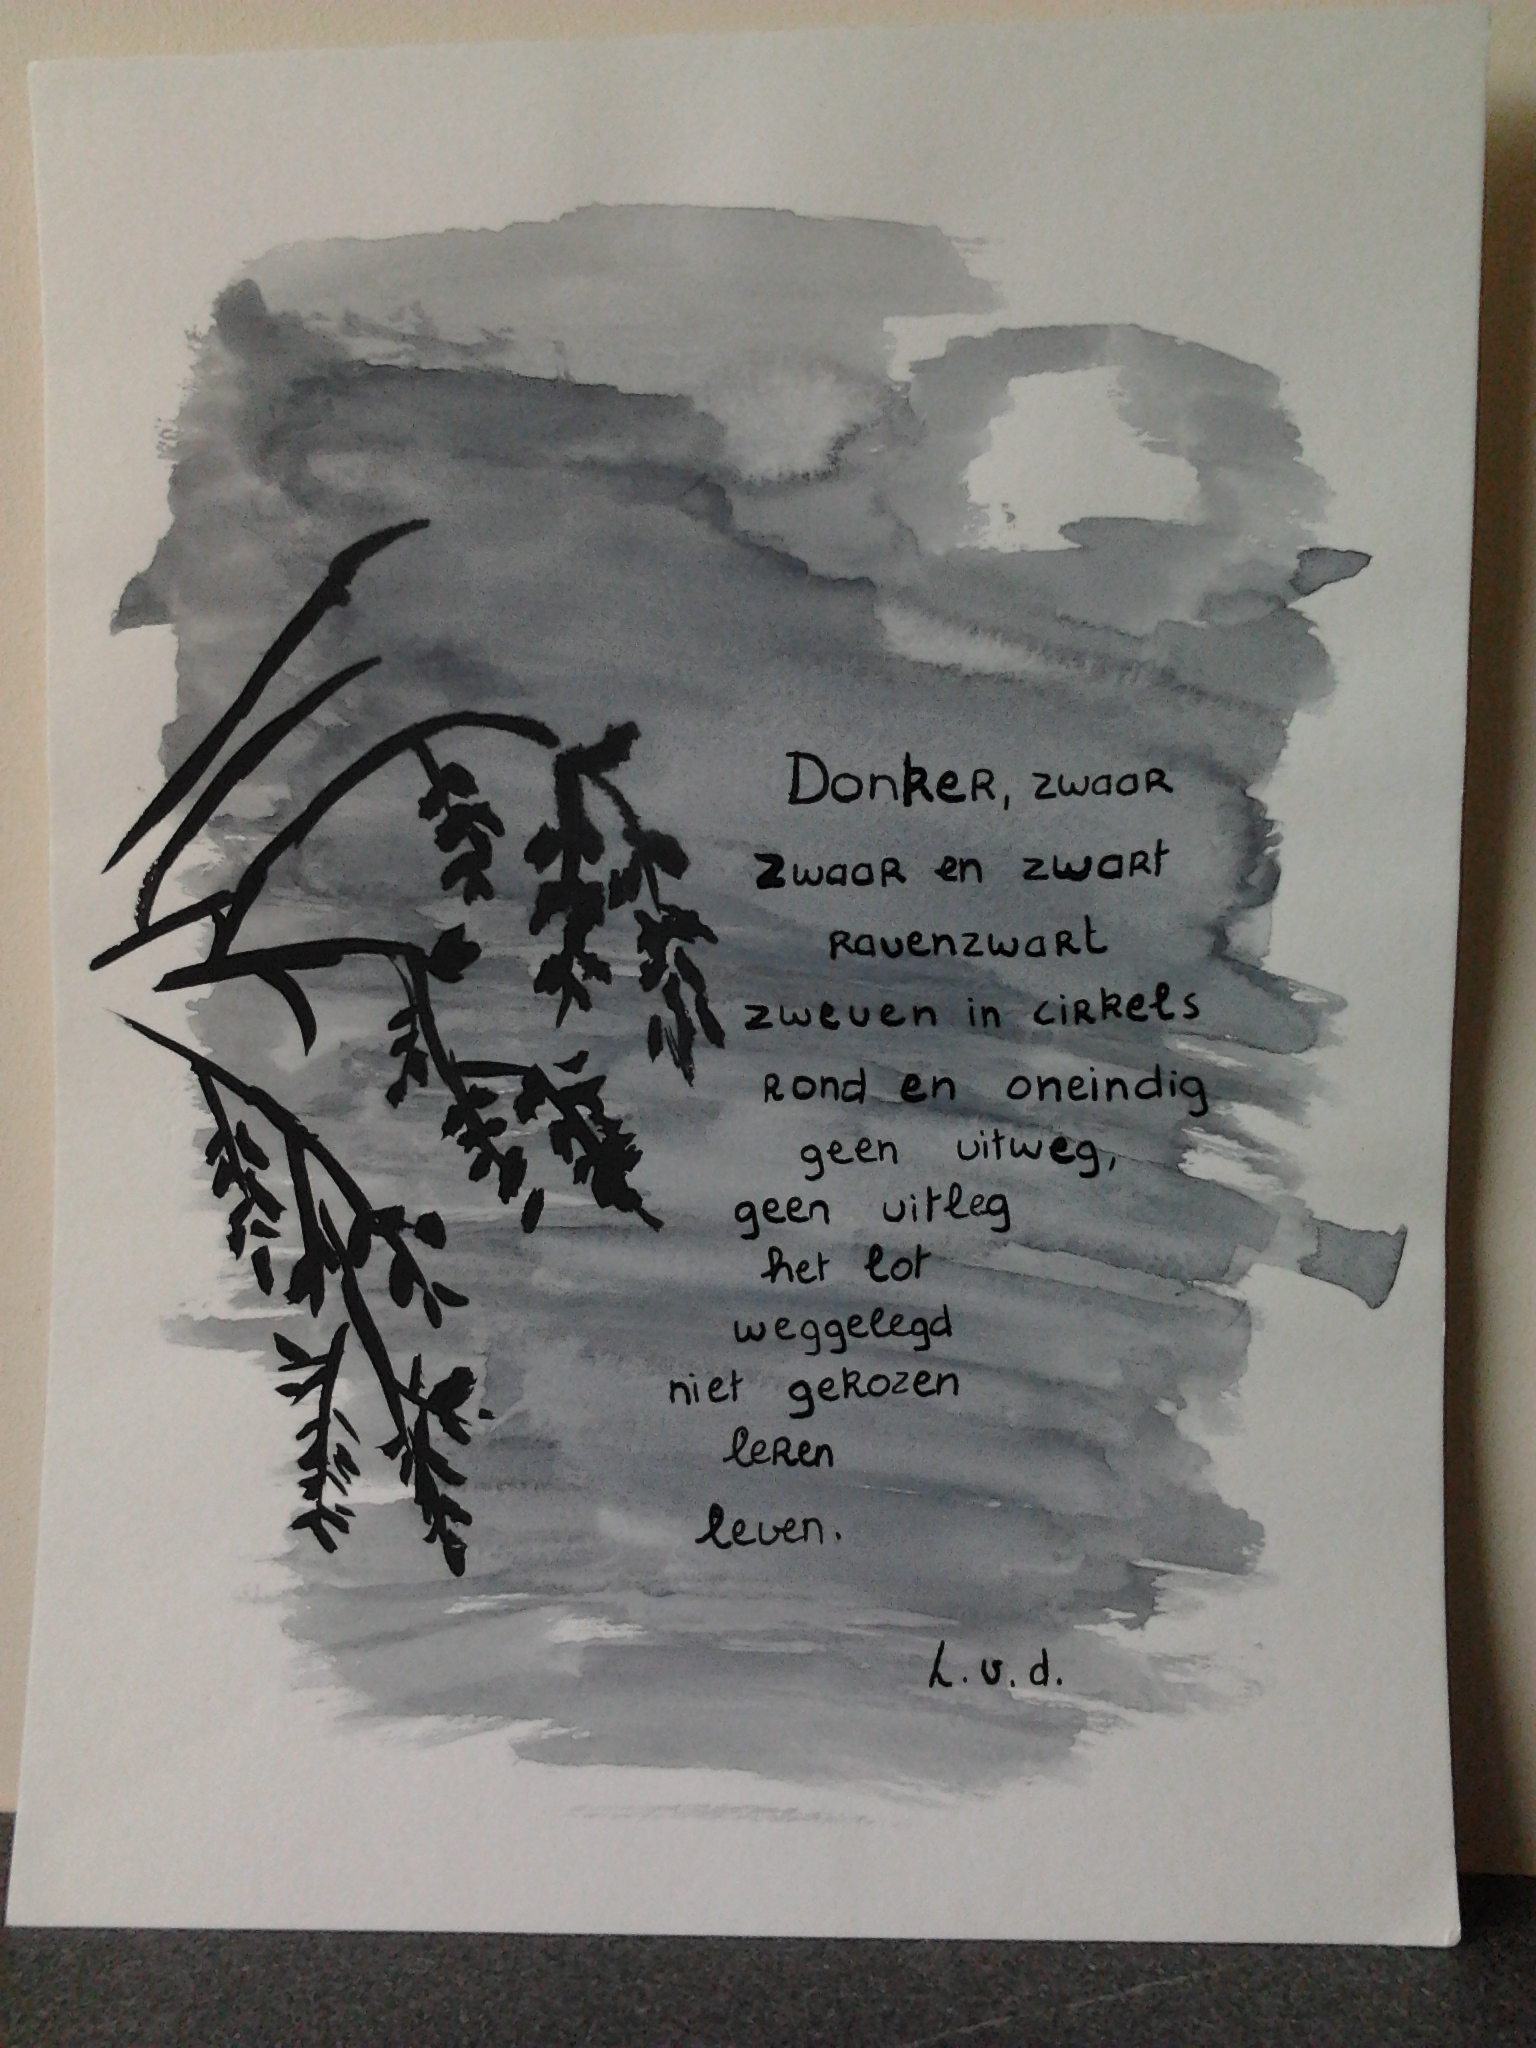 Donker, zwaar
zwaar en zwart
ravenzwart
zweven in cirkels
rond en oneindig
geen uitweg,
geen uitleg
het lot
weggelegd
niet gekozen
leren
leven.
L.v.d.